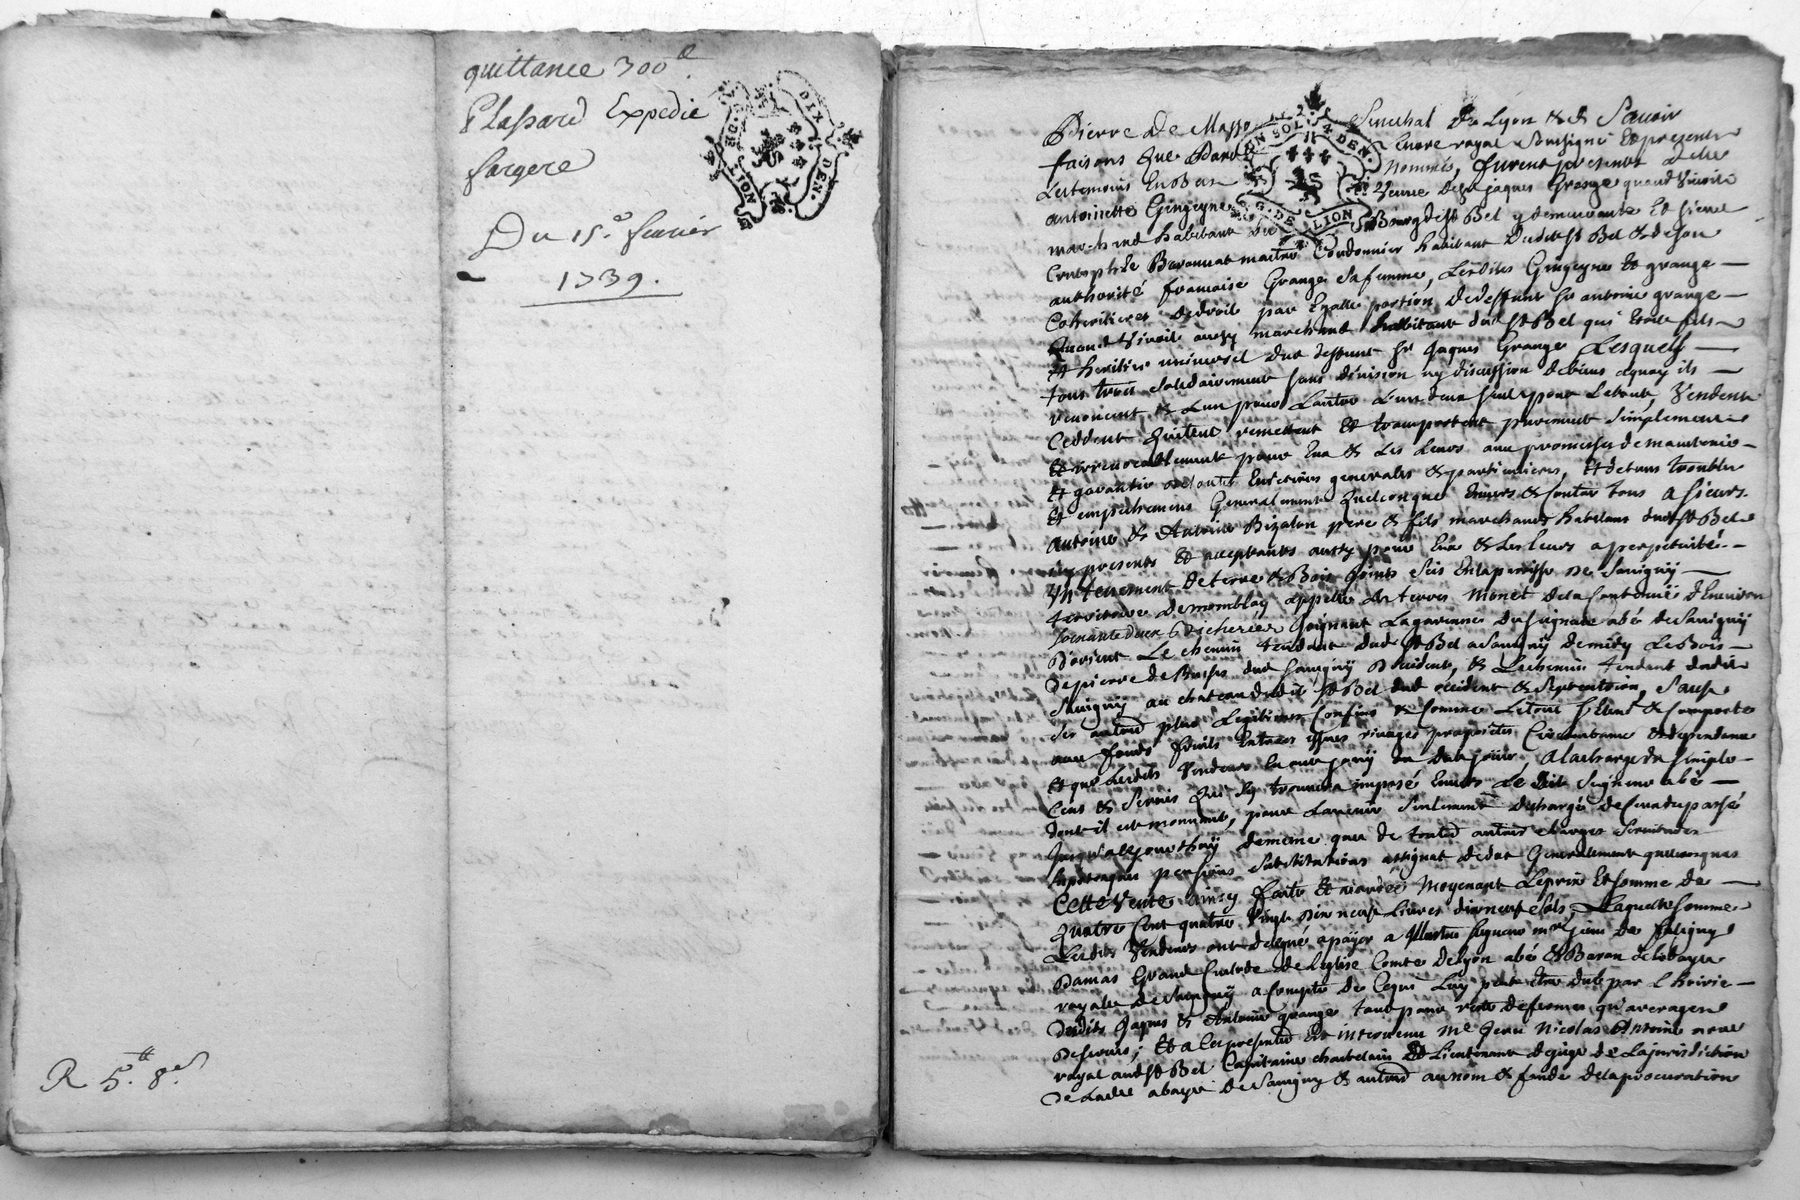 quittance 300 ₶.
Plassard Expedié
fargere
Du 15.e feurier
1739.
R 5.₶ 8.s
GEN. DE LION
DIX DEN.
Pierre de Masso Senechal de Lyon & d Sauoir
faisons que Pard nore royal soussigné Et presents
Les temoins En Bas nommés, furent presents
antoinette Gingeyne veuve de sr jaques Grange quand viuoit
marchand habitant du Bourg de st Bel y demeurante Et sieur
Cristophle maitre Cordonnier habitant dudit st Bel & de son
authorité francoise Grange sa femme, Lesdites Gingeyne Et grange
Coheritieres de droit par Egalle portion, de deffunt sr antoine grange
quand viuoit aussy marchand habitant dud st Bel qui Etoit fils
& heritier uniuersel dud deffunt sr Jaques Grange Lesquels
tous trois solidairement sans diuision ny discussion de biens a quoy ils
renoncent & L'un pour L'autre L'un d'eux seul pour Le tout, Vendent
Ceddent quittent remettent Et transportent purement simplement
Et irreuocablement pour Eux & Les Leurs auec promesses de maintenir
Et garantir de touttes Euictions generales & particulieres, Et de tous troubles
Et empechemens Generalement quelconques Enuers & Contre tous a sieurs
antoine & Antoine Bizalon pere & fils marchands habitans dud st Bel
icy presents Et acceptants aussy pour Eux & Les Leurs a perpetuité
Un tenement de terre & Bois joints scis En la parroisse de Sauigny
territoire de montbloy appellé Les terres monet de la Contenuë d'Enuiron
soixante deux Bicherées joignant La garenne du seigneur abé de Sauigny
D'orient Le chemin tendant dud st Bel a Sauigny de midy Le Bois
de pierre de dud Sauigny d'occident, & Le chemin tendant dudit
Sauigny au chateau dudit st Bel dud occident & septentrion, Sauf
Ses autres plus Legitimes Confins & Comme Le tout s'Etend & Comporte
auec fonds fruits Entrées issues usages proprietés Circonstances & dependances
Et que Lesdits Vendeurs En ont jouy ou du jouir, a La charge du simple
Cens & Seruis qui s'y trouuera imposé Enuers Le dit Seigneur abé
dont il est mouuant, pour L'auenir seulement dechargé de Ceux du passé
jusqu'a aujourd'huy de meme que de touttes autres charges Seruitudes
hypoteques pensions substitutions Generalement quelconques
Cette Vente ainsy faite Et Moyenant Le prix Et somme de
Quatre Cent quatre Vingt Dix neuf Liures dixneuf sols, Laquelle somme
Lesdits Vendeurs ont delegué a payer a jllustre seigneur
Damas Grand Custode de L'eglise Comte de Lyon abé & Baron de L'abaye
royale de Sauigny a Compte de Ce qui Luy peut Etre dub par L'hoirie
desdits Jaques & Antoine grange tant pour reste de fermes qu'arerages
de seruis; Et a Ces presentes Est interuenu Me Jean Nicolas Antoine nore
royal aud st Bel Capitaine chatelain Et Lieutenant de juge de La jurisdiction
de Ladte abaye de Sauigny & autres au nom & fondé de la procuration